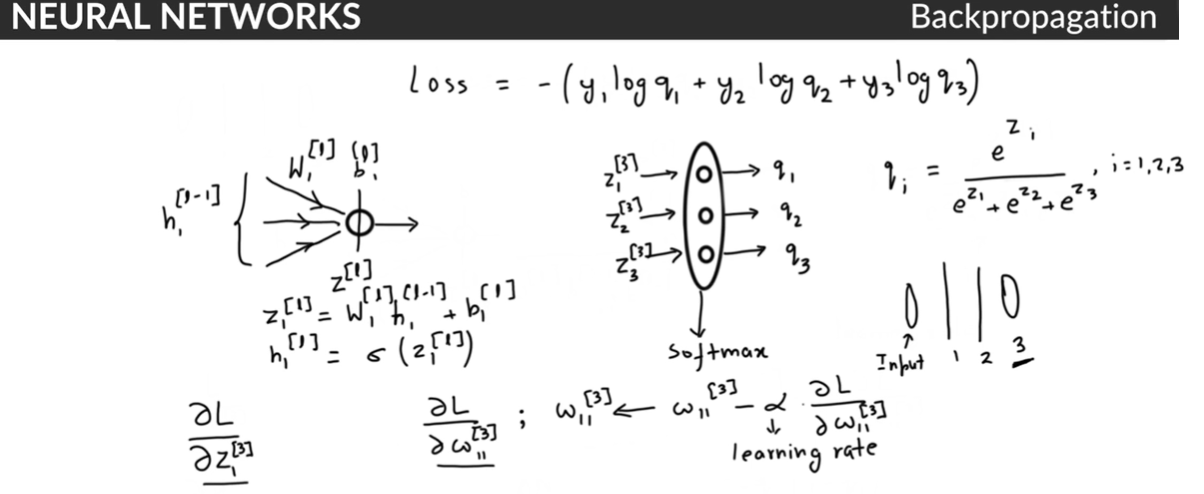 NEURAL NETWORKS
Backpropagation
Loss = -(y₁ log q₁ + y₂ log q₂ + y₃ log q₃)
W₁^[l] b₁^[l]
h₁^[l-1]
z^[l]
z₁^[l] = W₁^[l] h₁^[l-1] + b₁^[l]
h₁^[l] = σ(z₁^[l])
z₁^[3] → q₁
z₂^[3] → q₂
z₃^[3] → q₃
softmax
qᵢ = e^zᵢ / (e^z₁ + e^z₂ + e^z₃), i = 1,2,3
Input 1 2 3
∂L/∂z₁^[3]
∂L/∂ω₁₁^[3] ; ω₁₁^[3] ← ω₁₁^[3] - α · ∂L/∂ω₁₁^[3]
learning rate